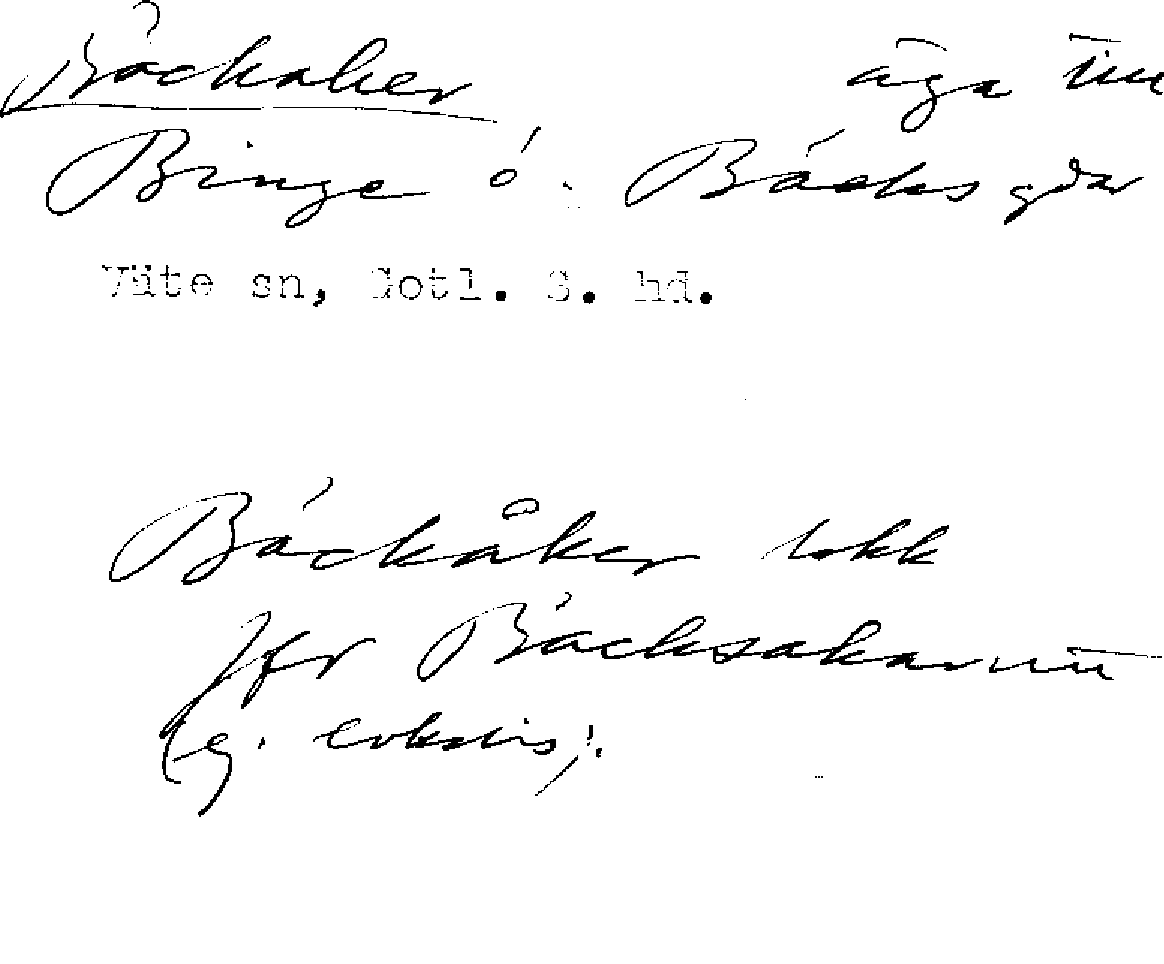 Bäckaker äga till
Binge o. Bäcks gdar
Väte sn, Gotl. S. hd.
Bäckåker lokk
Jfr Bäcksakarna
(g.